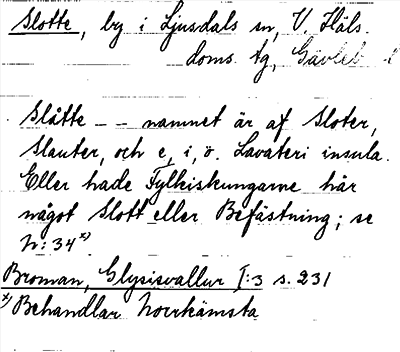 Slotte, by i Ljusdals sn, V. Häls.
doms. tg, Gävleb. l
Slåtte -- namnet är af Sloter,
Slauter, och e, i, ö. Lavateri insula.
Eller hade Fylkiskungarne här
något Slott eller Befästning; se
N: 34 x)
Broman, Glysisvallur I:3 s. 231
x) Behandlar Norrkämsta